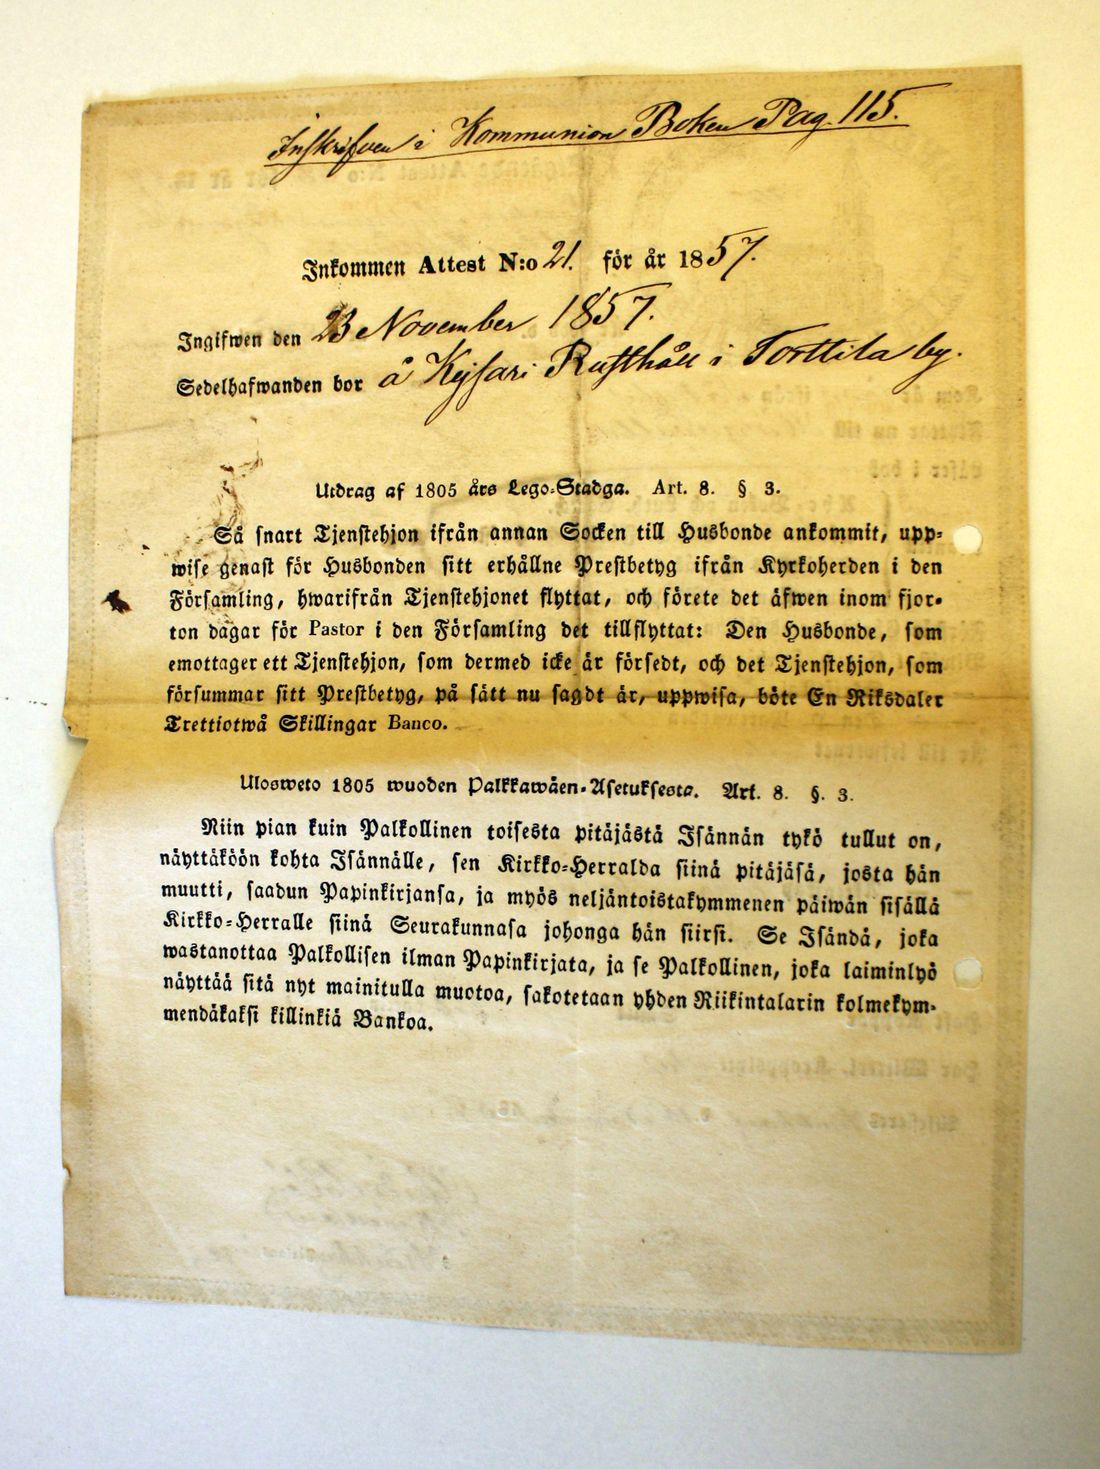 Inskrifven i Kommunion Boken Pag. 115.
Inkommen Attest N:o 21. för år 1857.
Ingifwen den 23 November 1857.
Sedelhafwanden bor å Kejsari Rusthåll i Torttila by.
Utdrag af 1805 års Lego-Stadga. Art. 8. § 3.
Så snart Tjenstehjon ifrån annan Socken till Husbonde ankommit, upp-
wise genast för Husbonden sitt erhållne Prestbetyg ifrån Kyrkoherden i den
Församling, hwarifrån Tjenstehjonet flyttat, och förete det äfwen inom fjor-
ton dagar för Pastor i den Församling det tillflyttat: Den Husbonde, som
emottager ett Tjenstehjon, som dermed icke är försedt, och det Tjenstehjon, som
försummar sitt Prestbetyg, på sätt nu sagdt är, uppwisa, böte En Riksdaler
Trettiotwå Skillingar Banco.
Ulosweto 1805 wuoden Palkkawäen-Asetuksesta. Art. 8. §. 3.
Niin pian kuin Palkollinen toisesta pitäjästä Isännän tykö tullut on,
näyttäköön kohta Isännälle, sen Kirkko-Herralda siinä pitäjäsä, josta hän
muutti, saadun Papinkirjansa, ja myös neljäntoistakymmenen päiwän sisällä
Kirkko-Herralle siinä Seurakunnasa johonga hän siirsi. Se Isändä, joka
wastanottaa Palkollisen ilman Papinkirjata, ja se Palkollinen, joka laiminlyö
näyttää sitä nyt mainitulla muotoa, sakotetaan yhden Riikintalarin kolmekym-
mendäkaksi killinkiä Bankoa.